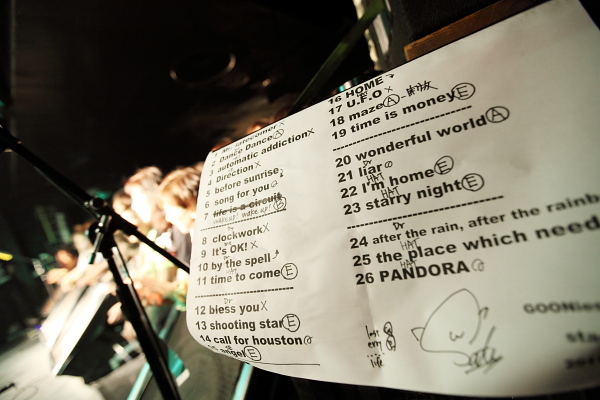 1 Mr. latecomer X
2 Dance Dance Ⓐ
3 automatic addiction X
4 Direction X
5 before sunrise
6 song for you
7 life is a circuit
WAKE UP! WAKE UP! Ⓔ
Dr
8 clockwork X
9 It's OK! X
Dr
10 by the spell
HAT
11 time to come Ⓔ
Dr
12 bless you X
13 shooting star Ⓔ
14 call for houston
15 angel Ⓔ
16 HOME
17 U.F.O X
18 maze Ⓐ
19 time is money Ⓔ
20 wonderful world Ⓐ
Dr
21 liar
HAT
22 I'm home Ⓔ
HAT
23 starry night Ⓔ
Dr
24 after the rain, after the rainb
HAT
25 the place which need
HAT
26 PANDORA
lost
every
life
GOONies
sta